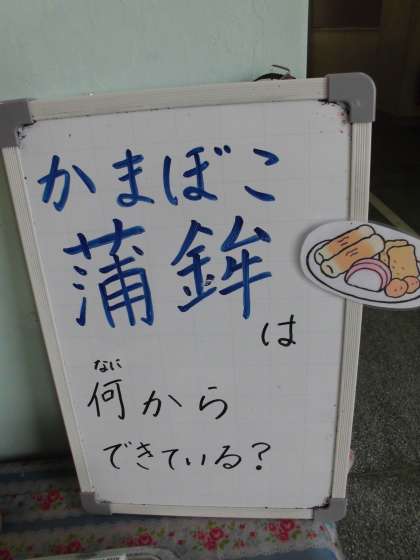 かまぼこ
蒲鉾
は
なに
何から
できている?